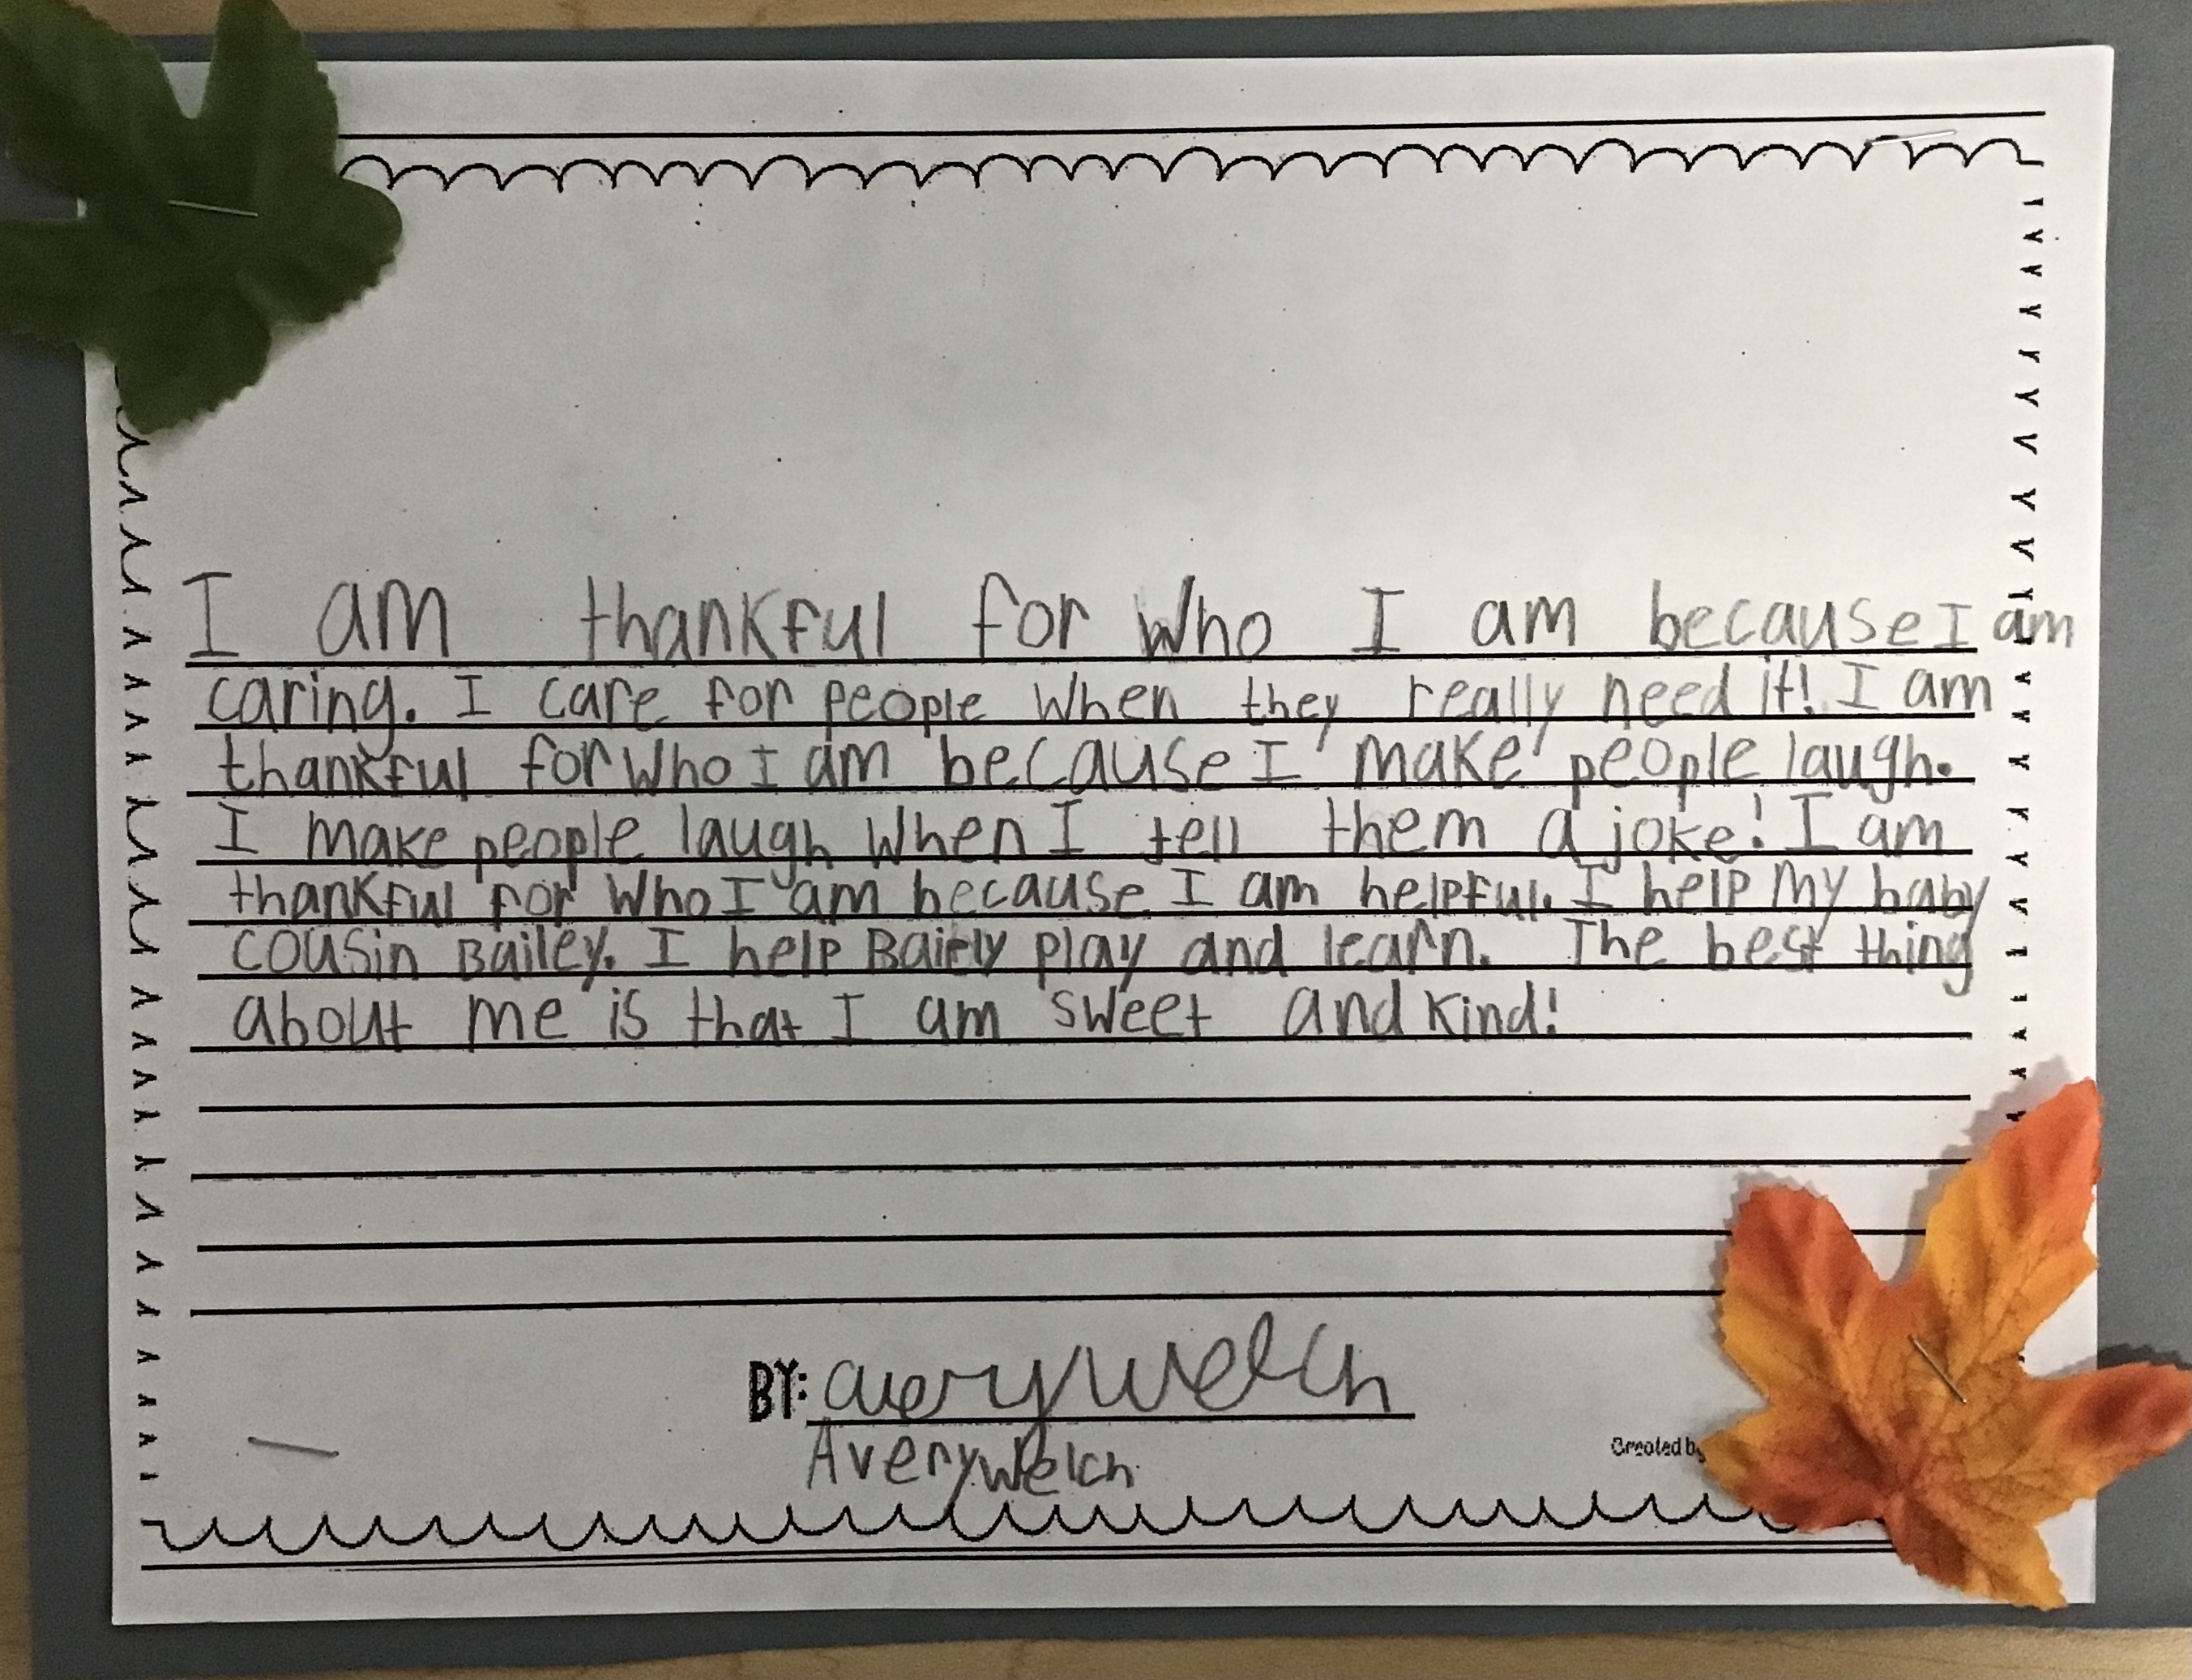 I am thankful for who I am because I am
caring. I care for people when they really need it! I am
thankful for who I am because I make people laugh.
I make people laugh when I tell them a joke! I am
thankful for who I am because I am helpful. I help my baby
cousin Bailey. I help Baiely play and learn. The best thing
about me is that I am sweet and kind!
BY: avery welch
Avery Welch
Created by